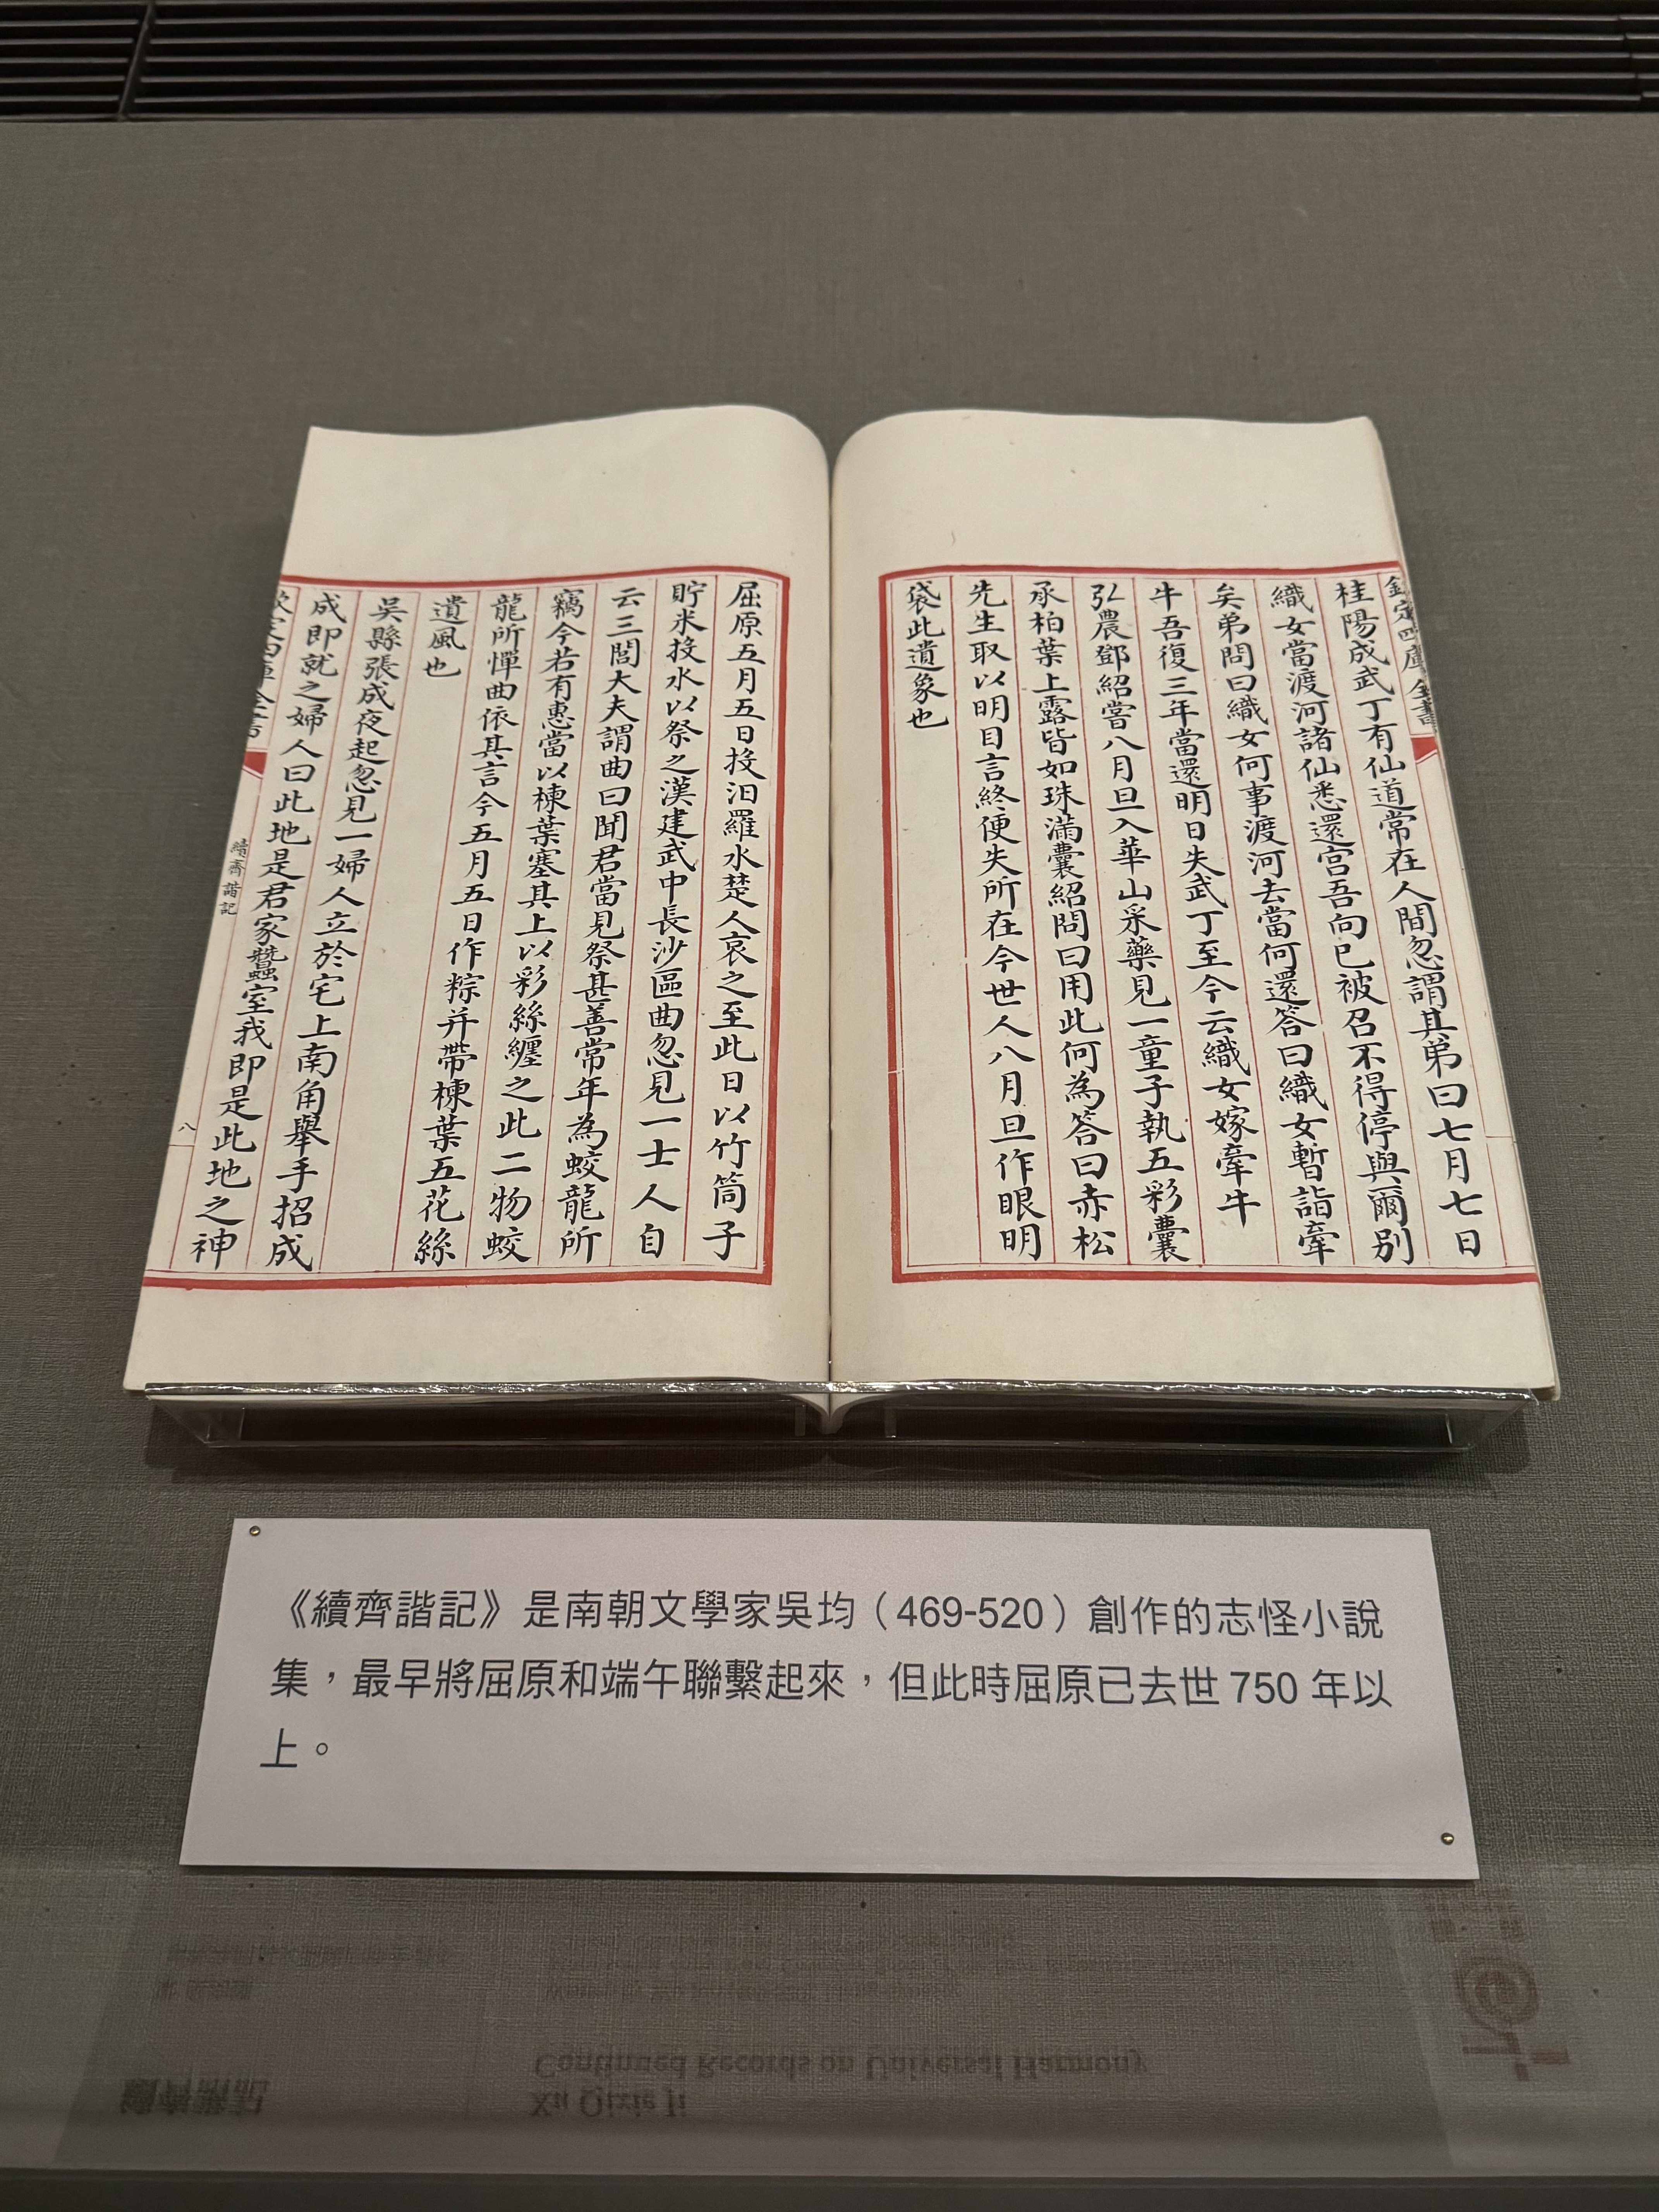 欽定四庫全書
桂陽成武丁有仙道常在人間忽謂其弟曰七月七日
織女當渡河諸仙悉還宮吾向已被召不得停與爾别
矣弟問曰織女何事渡河去當何還答曰織女暫詣牽
牛吾復三年當還明日失武丁至今云織女嫁牽牛
弘農鄧紹嘗八月旦入華山采藥見一童子執五彩囊
承柏葉上露皆如珠滿囊紹問曰用此何為答曰赤松
先生取以明目言終便失所在今世人八月旦作眼明
袋此遺象也
屈原五月五日投汨羅水楚人哀之至此日以竹筒子
貯米投水以祭之漢建武中長沙區曲忽見一士人自
云三閭大夫謂曲曰聞君當見祭甚善常年為蛟龍所
竊今若有惠當以楝葉塞其上以彩絲纏之此二物蛟
龍所憚曲依其言今五月五日作粽并帶楝葉五花絲
遺風也
吳縣張成夜起忽見一婦人立於宅上南角舉手招成
成即就之婦人曰此地是君家蠶室我即是此地之神
續齊諧記
八
《續齊諧記》是南朝文學家吳均（469-520）創作的志怪小說
集，最早將屈原和端午聯繫起來，但此時屈原已去世 750 年以
上。
續齊諧記
Xu Qixie Ji
Continued Records on Universal Harmony